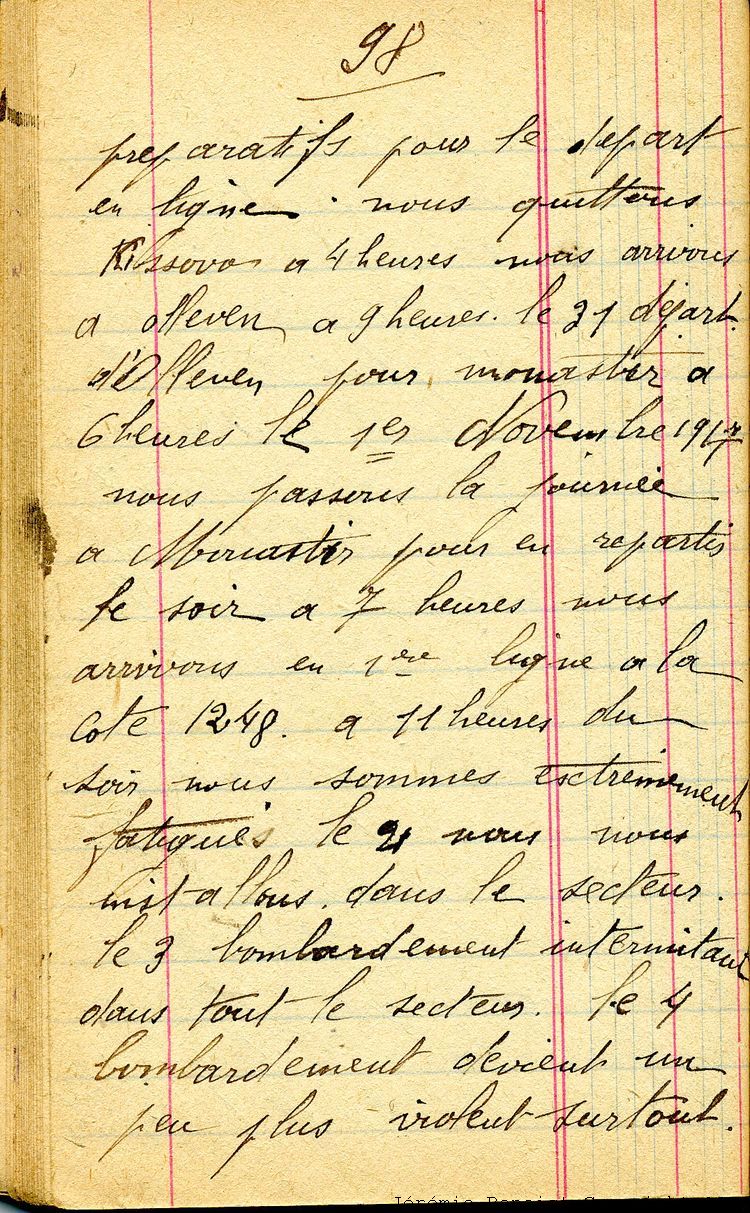 98
preparatifs pour le depart
en ligne. nous quittons
Kissovo a 4 heures nous arrivons
a Olleven a 9 heures. le 31 départ
d'Olleven pour monastir a
6 heures le 1er Novembre 1917
nous passons la journée
a Monastir pour en repartir
le soir a 7 heures nous
arrivons en 1ere ligne a la
cote 1248. a 11 heures du
soir nous sommes extremement
fatigués le 2 nous nous
installons. dans le secteur.
le 3 bombardement intermitant
dans tout le secteur. le 4
bombardement devient un
peu plus violent surtout.